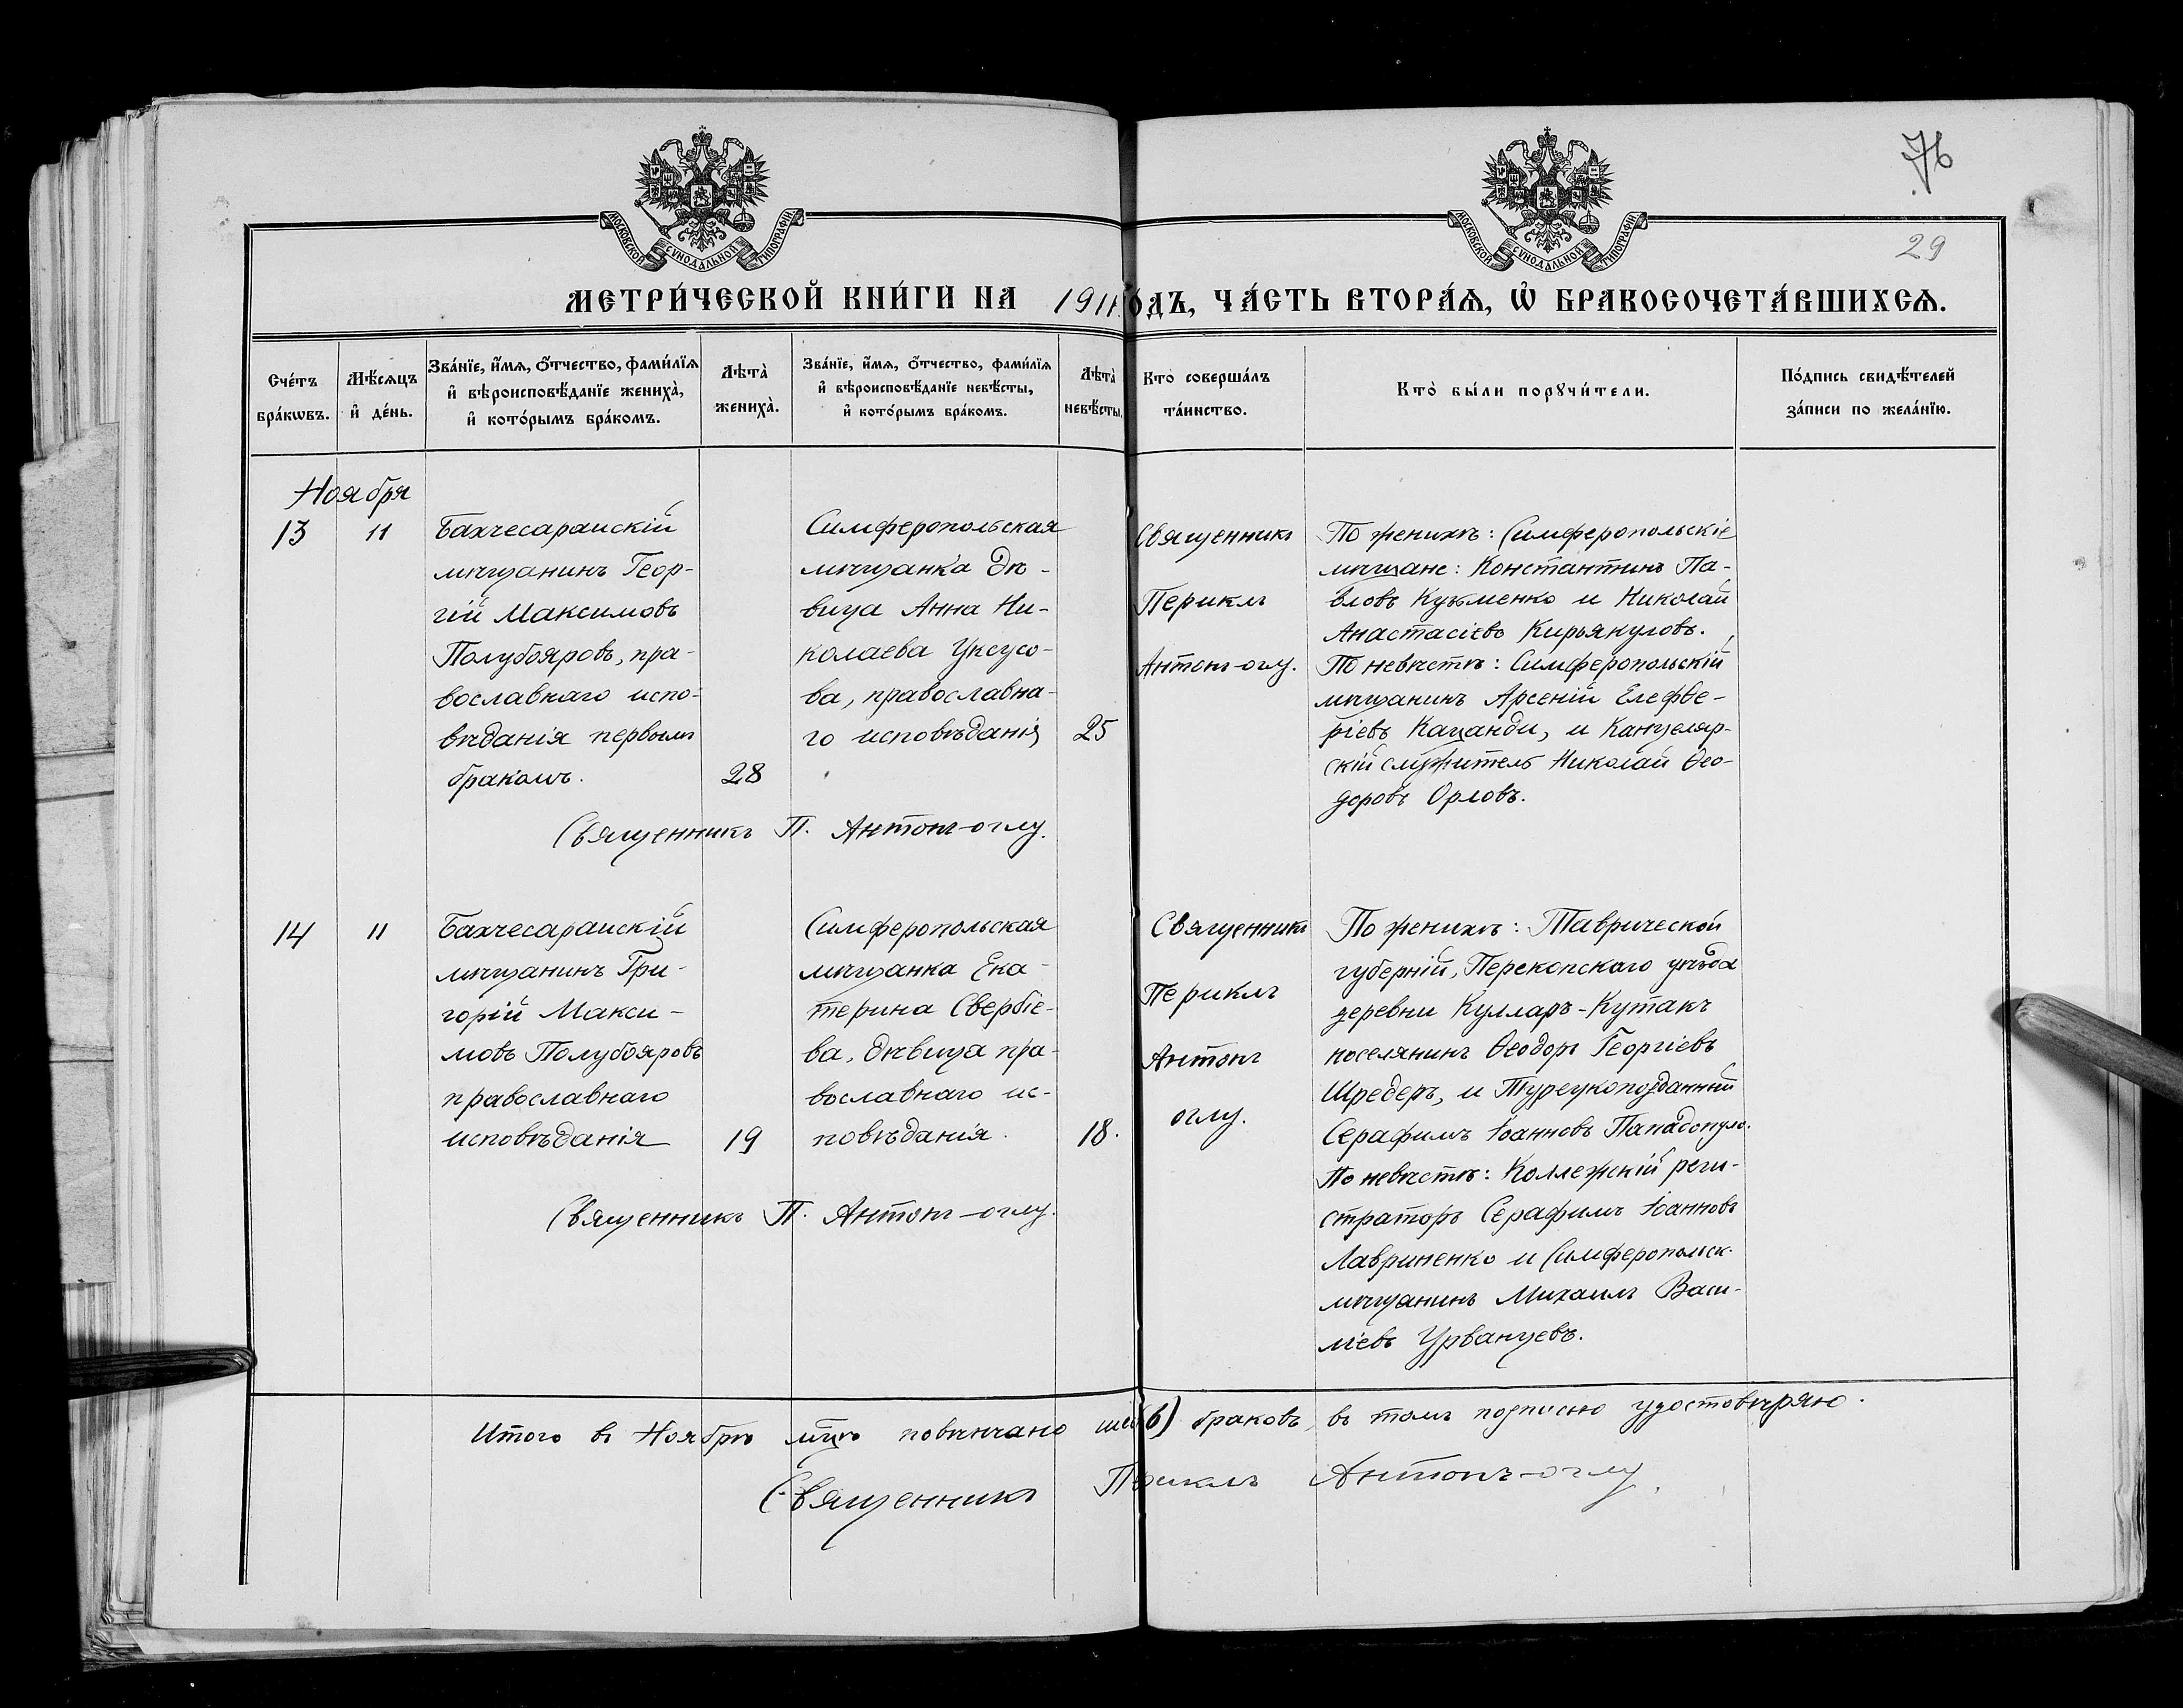 МОСКОВСКОЙ СѴНОДАЛЬНОЙ ТИПОГРАФІИ
МОСКОВСКОЙ СѴНОДАЛЬНОЙ ТИПОГРАФІИ
76
29
МЕТРИ́ЧЕСКОЙ КНИ́ГИ НА 1911 ОДЪ, ЧА́СТЬ ВТОРА́Ѧ, Ѡ҆ БРАКОСОЧЕТА́ВШИХСѦ.
Сче́тъ бра́кѡвъ.
Мѣ́сѧцъ и҆ де́нь.
Зва́нїе, и҆́мѧ, ѻ҆́тчество, фамі́лїѧ и҆ вѣроисповѣ́данїе жениха̀, и҆ кото́рымъ бра́комъ.
Лѣта̀ жениха̀.
Зва́нїе, и҆́мѧ, ѻ҆́тчество, фамі́лїѧ и҆ вѣроисповѣ́данїе невѣ́сты, и҆ кото́рымъ бра́комъ.
Лѣта̀ невѣ́сты.
Кто̀ соверша́лъ та́инство.
Кто̀ бы́ли порꙋчи́тели.
По́дпись свидѣ́телей за́писи по жела́нїю.
Ноября
13
11
Бахчесарайскій
мѣщанинъ Геор-
гій Максимовъ
Полубояровъ, пра-
вославнаго испо-
вѣданія первымъ
бракомъ.
28
Симферопольская
мѣщанка дѣ-
вица Анна Ни-
колаева Уксусо-
ва, православна-
го исповѣданія
25
Священникъ
Периклъ
Антонъ-оглу.
По женихѣ: Симферопольскіе
мѣщане: Константинъ Па-
вловъ Кузьменко и Николай
Анастасіевъ Кирьякуловъ.
По невѣстѣ: Симферопольскій
мѣщанинъ Арсеній Елефѳе-
ріевъ Каханди, и Канцеляр-
скій служитель Николай Ѳео-
доровъ Орловъ.
Священникъ П. Антонъ-оглу.
14
11
Бахчесарайскій
мѣщанинъ Гри-
горій Макси-
мовъ Полубояровъ
православнаго
исповѣданія
19
Симферопольская
мѣщанка Ека-
терина Свербіе-
ва, дѣвица пра-
вославнаго ис-
повѣданія.
18.
Священникъ
Периклъ
Антонъ
оглу.
По женихѣ: Таврической
губерній, Перекопскаго уѣзда
деревни Кулларъ-Кутакъ
поселянинъ Ѳеодоръ Георгіевъ
Шредеръ, и Турецкоподданный
Серафимъ Іоанновъ Пападопуло.
По невѣстѣ: Коллежскій реги-
страторъ Серафимъ Іоанновъ
Лавриненко и Симферопольск.
мѣщанинъ Михаилъ Васи-
ліевъ Урванцевъ.
Священникъ П. Антонъ-оглу.
Итого въ Ноябрѣ мцѣ повѣнчано (6) браковъ, въ томъ подписью удостовѣряю.
Священникъ Периклъ Антонъ-оглу.